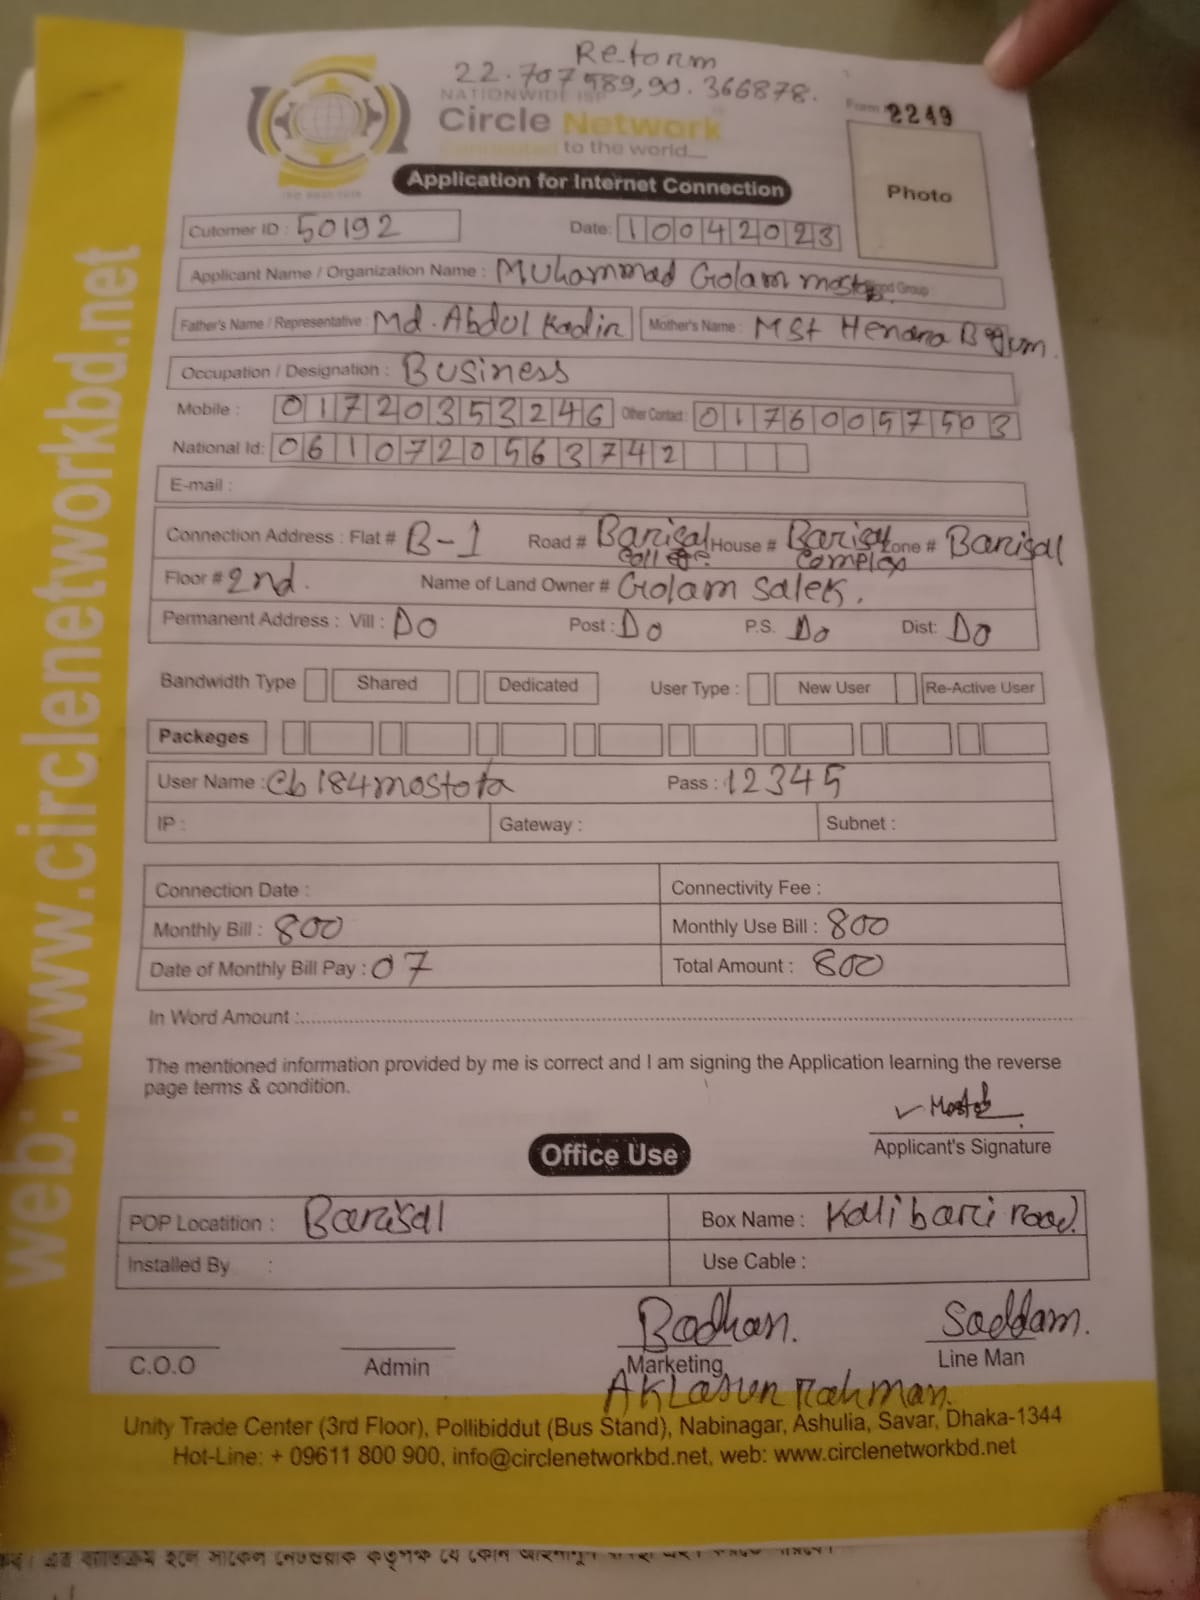 Reform
22.707589,90.366878.
NATIONWIDE ISP
Circle Network
Connected to the world__
Form 2249
Photo
Application for Internet Connection
Cutomer ID : 50192 Date: 10042023
Applicant Name / Organization Name : Muhammad Golam mostofa Group :
Father's Name / Representative : Md. Abdul Kadir Mother's Name : MSt Hendra Begum.
Occupation / Designation : Business
Mobile : 01720353246 Other Contact : 01760057503
National Id: 0610720563742
E-mail :
Connection Address : Flat # B-1 Road # Barisal College House # Barisal Complex Zone # Barisal
Floor # 2nd. Name of Land Owner # Golam Salek.
Permanent Address : Vill : Do Post : Do P.S. Do Dist: Do
Bandwidth Type Shared Dedicated User Type : New User Re-Active User
Packeges
User Name : Cb184mostofa Pass : 12345
IP : Gateway : Subnet :
Connection Date : Connectivity Fee :
Monthly Bill : 800 Monthly Use Bill : 800
Date of Monthly Bill Pay : 07 Total Amount : 800
In Word Amount :
The mentioned information provided by me is correct and I am signing the Application learning the reverse
page terms & condition.
Applicant's Signature
Office Use
POP Locatition : Barisal Box Name : Kalibari road.
Installed By : Use Cable :
Badhan. Saddam.
C.O.O Admin Marketing Line Man
Aklasur Rahman.
Unity Trade Center (3rd Floor), Pollibiddut (Bus Stand), Nabinagar, Ashulia, Savar, Dhaka-1344
Hot-Line: + 09611 800 900, info@circlenetworkbd.net, web: www.circlenetworkbd.net
web: www.circlenetworkbd.net